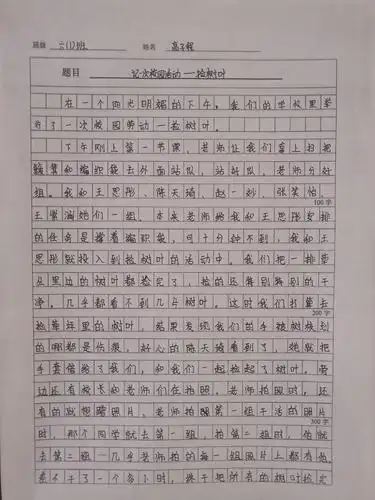 班级 六(1)班 姓名 高子程
题目 记一次校园活动——捡树叶
在一个阳光明媚的下午，我们的学校里举
办了一次校园劳动一捡树叶。
下午刚上第一节课，老师让我们拿上扫把
簸箕和编织袋去外面站队，站好队，老师分好
组。我和王思彤、陈天琦、赵一妙、张笑怡、
王 涵她们一组。本来老师给我和王思彤安排
100字
的任务是撑着编织袋，可十分钟不到，我和王
思彤就投入到捡树叶的活动中。我们把一排草
丛里边的树叶都捡完了，捡的还特别特别的干
净，几乎都看不到几片树叶。这时我们打算去
200字
捡草坪里的树叶，结果发现我们的手被树枝划
的哪都是伤痕，好心的陈天琦看到了，她就把
手套借给了我们，和我们一起捡起了树叶。旁
边还有校长和老师们在拍照。老师拍照时，还
有的就想蹭照片、老师拍照第一组干活的照片
300字
时，那个同学就去第一组，拍第二组时，他就
去第二组—几乎老师拍的每一组照片上都有他。
我们干了一个多小时，终于把所有的树叶捡完